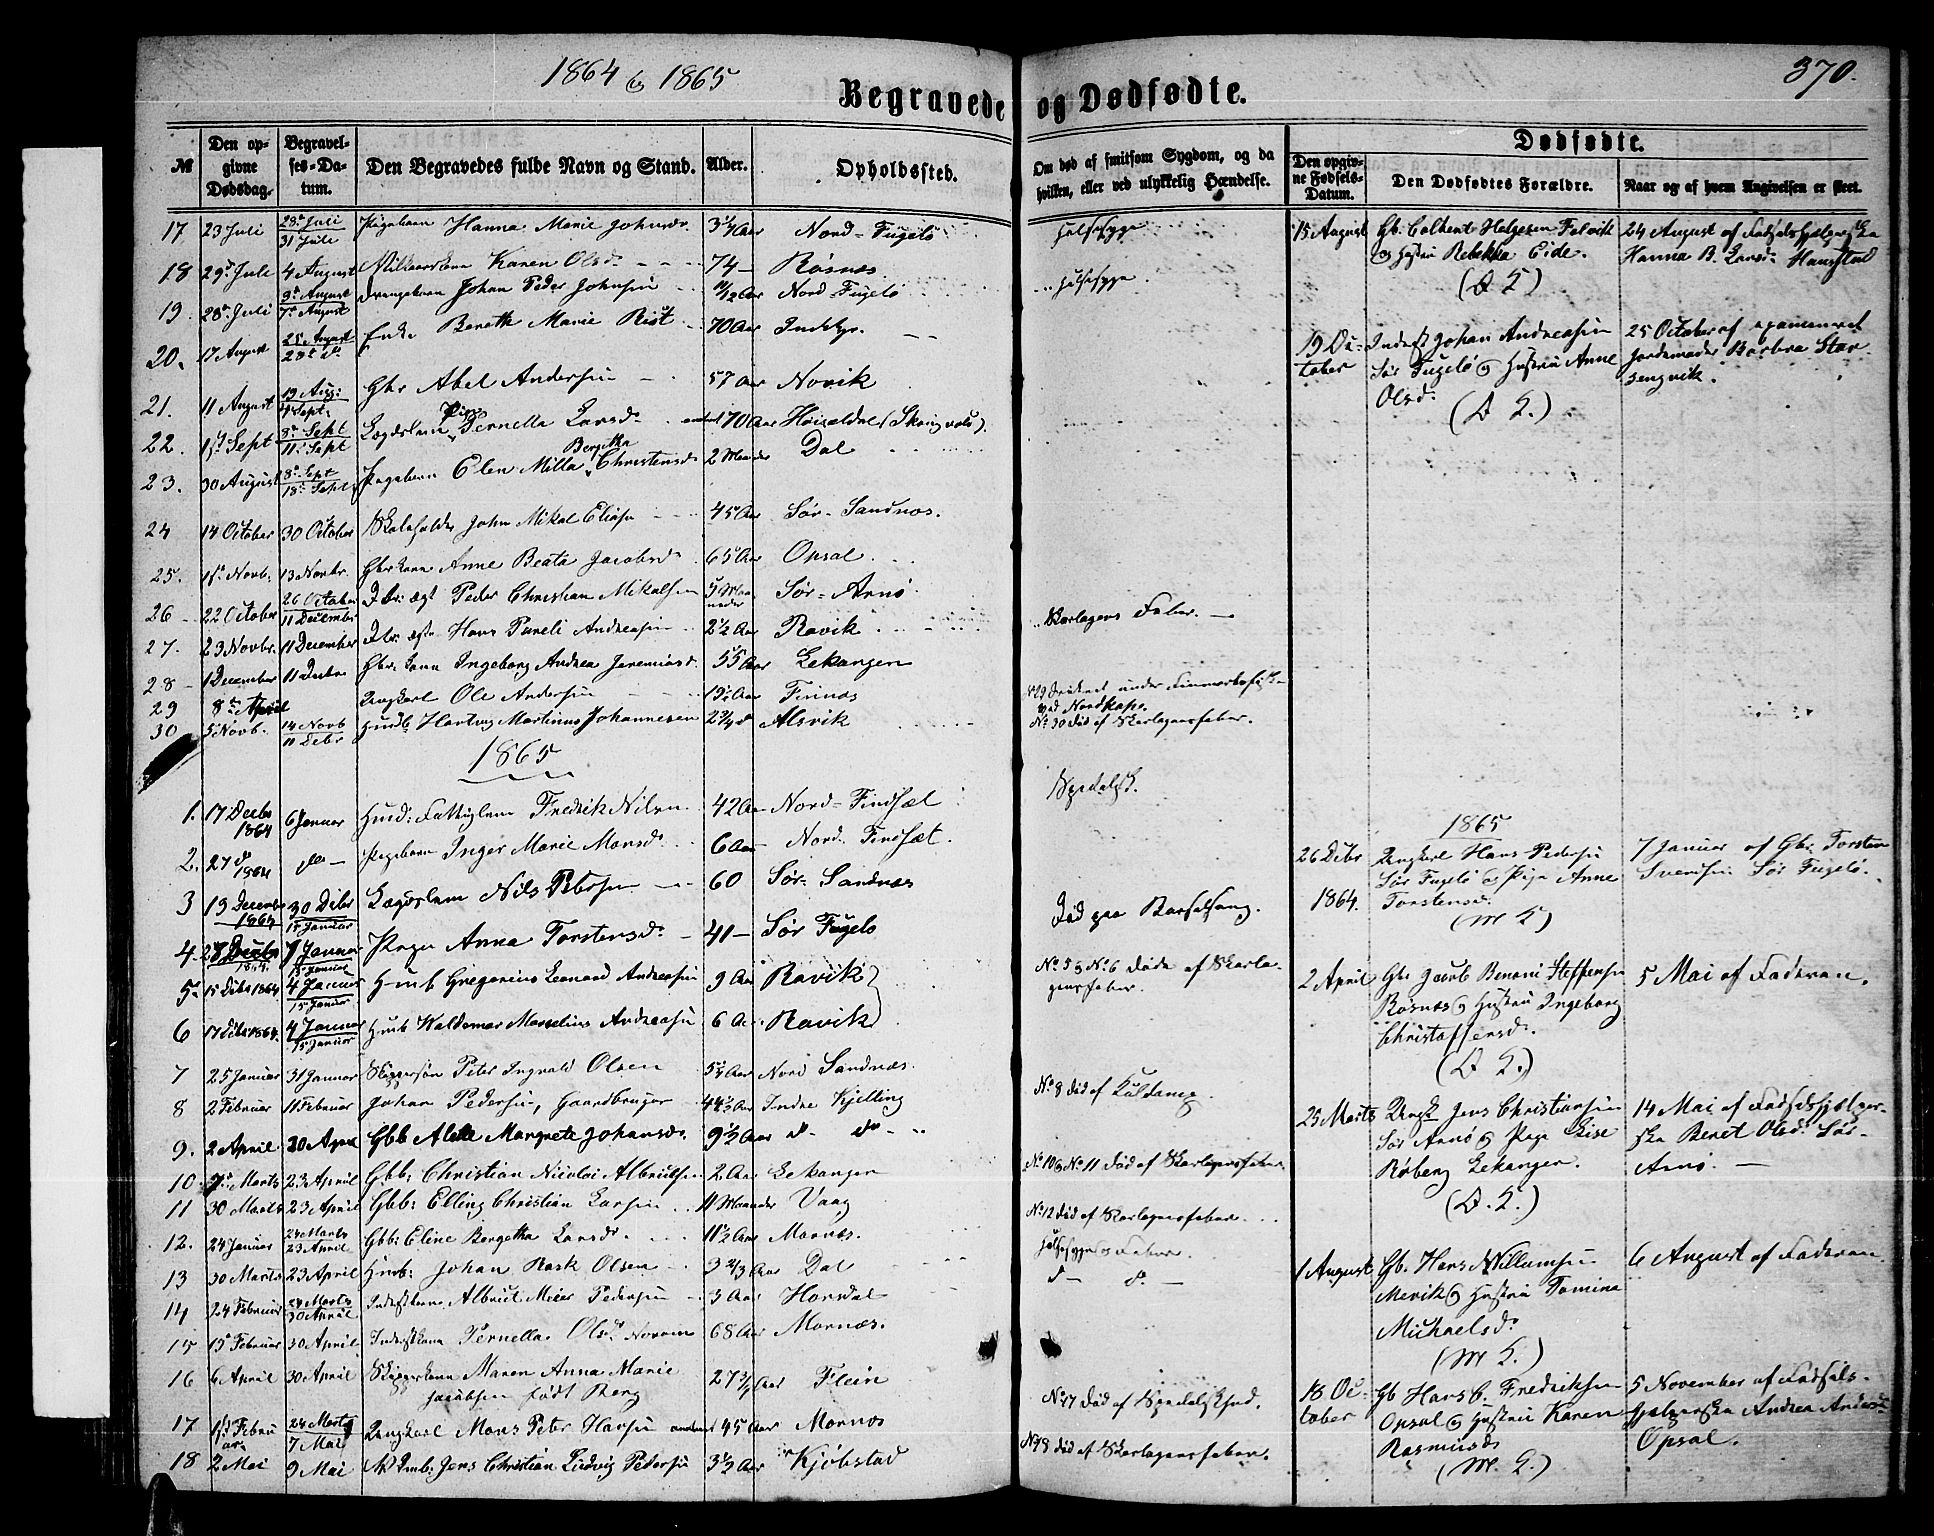 1864 & 1865
370.
Begravede og Dødfødte.
№
Den opgivne Dødsdag.
Begravelses-Datum.
Den Begravedes fulde Navn og Stand.
Alder.
Opholdssted.
Om død af smitsom Sygdom, og da hvilken, eller ved ulykkelig Hændelse.
Dødfødte.
Den opgivne Fødsels-Datum.
Den Dødfødtes Forældre.
Naar og af hvem Angivelsen er skeet.
17 23 Juli 28 Juli 31 Juli Pigebarn Hanna Marie Johnsdr 3 1/4 Aar Nord-Fugelø Halssyge
18 29 Juli 4 August Karen Olsdr 74 Røsnæs
19. 28 Juli 9 August 7 August Drengebarn Johan Peder Johnsen 11/12 Aar Nord Fugelø Halssyge.
20. 17 August 25 August 28 Enke Bereth Marie Rist 70 Aar Indstyr.
21. 11 August 19 Aug: 4 Sept: Gbr Abel Andersen 57 Aar Novik
22. 1 Sept 8 Sept 11 Sept Lægdslem Pige Pernella Larsdr 70 Aar
23. 30 August 8 Sept 18 Sept Pigebarn Elen Milla Bergetha Christensdr 2 Maaneder Dal
24 14 October 30 October John Mikal Elias 45 Aar Sør-Sandnæs.
25. 1 Novb: 13 Novbr. Gbrkone Anne Beata Jacobsdr 65 Aar Opsal
26 22 October 26 October 11 Decembr Peder Christian Mikalsen 5 Maaneder Sør-Arnø
27. 23 Novbr. 11 December Hans Pareli Andreasen 2 1/2 Aar Ravik Skarlagens Feber.
28 1 December 11 Debr Gbr: kone Ingeborg Andrea Jeremiasd. 55 Aar Lekangen
29 8 April Ungkarl Ole Andersen 19 1/2 Aar Finnæs No 29 Druknet under Finmarksfisket ved Nordkap.
30 5 Novb. 14 Novb 11 Debr Husb: Hartvig Martinus Johannesen 2 3/4 Alsvik No 30 død af Skarlagensfeber.
1865
1. 17 Decbr 1864 6 Januar Husd: Fattiglem Fredrik Nilsen 42 Aar Nord-Findsæt Spedalsk.
2. 27 1864 do Pigebarn Inger Marie Monsdr 6 Aar Nord. Findsæt.
3 19 Decembr 1864 30 Debr 15 Januar Lægdslem Nils Petersen 60 Sør-Sandnæs
4. 27 Decbr 1864. 1 Januar 15 Januar Pige Anna Torstensdr 41 Sør Fugelø Død paa Barselseng.
5 15 Debr 1864 4 Januar 15 Januar Husb Gregorius Leonard Andreasen 9 Aar Ravik No 5 & No 6 døde af Skarlagensfeber.
6 17 Debr 1864. 4 Januar 15 Januar Husb Waldemar Marselius Andreasen 6 Aar Ravik
7 25 Januar 31 Januar Skippersøn Peter Ingvald Olsen 5 1/4 Aar Nord Sandnæs.
8 2 Februar 11 Februar Johan Pedersen, Gaardbruger 44 1/3 Aar Indre Kjelling No 8 død af Kuldamp.
9. 2 April 20 April Gbb Aletta Margrete Johansdr. 9 1/2 Aar do do
10 7 Marts 23 April Gbb: Christian Nicolai Albrigtsen 2 Aar Lekanger No 10 & No 11 død af Skarlagensfeber.
11 30 Marts 23 April Gbb: Elling Christian Larsen 11 Maaneder Vaag
12. 24 Januar 24 Marts 23 April Gbb: Eline Bergetha Larsdr 11 1/2 Aar Mornæs. No 12 død af Skarlagensfeber.
13 30 Marts 23 April Husb: Johan Rask Olsen 3 2/3 Aar Dal Halssyge & Feber.
14 24 Februar 24 Marts 30 April Albrigt Meier Pedersen 3 Aar Horsdal do do
15 15 Februar 30 April Inderstkone Pernella Olsd. 68 Aar Mornæs.
16 6 April 30 April Skipperkone Maren Anna Marie Jacobsen født Berg 27 Aar Flein
17 1 Februar 24 Marts 7 Mai Ungkarl Mons Peter Hansen 45 Aar Mornæs No 17 død af Spedalskhed.
18 2 Mai 9 Mai Jens Christian Ludvig Pedersen 3 1/2 Aar Kjøbstad No 18 død af Skarlagensfeber.
15 August Gb. Colbent Helgesen Felvik & Hustru Rebekka Eide. 24 August af Fødselshjælperske Hanna B. Larsd: Haugstad
19 October Inderst Johan Andreasen Sør Fugelø & Hustru Anne Olsd. 25 October af examineret Jordemoder Barbra Størsengvik.
1865
26 Debr 1864. Ungkarl Hans Pedersen Sør Fugelø & Pige Anne Torstensd. 7 Januar af Gbr: Torsten Svendsen Sør Fugelø.
2 April Gbr Jacob Benoni Steffensen Røsnæs & Hustru Ingeborg Christoffersd. 5 Mai af Faderen.
25 Marts Ungk Jens Christiansen Sør Arnø & Pige Lise Røberg Lekanger. 14 Mai af Fødselshjælperske Beret Olsd. Sør-Arnø.
1 August Gb. Hans Willumsen Mevik & Hustru Tomina Michaelsd. 6 August af Faderen
18 October Gb Hans C. Fredriksen Opsal & Hustru Karen Rasmusd. 5 November af Fødselshjælperske Andrea Andersd. Opsal.